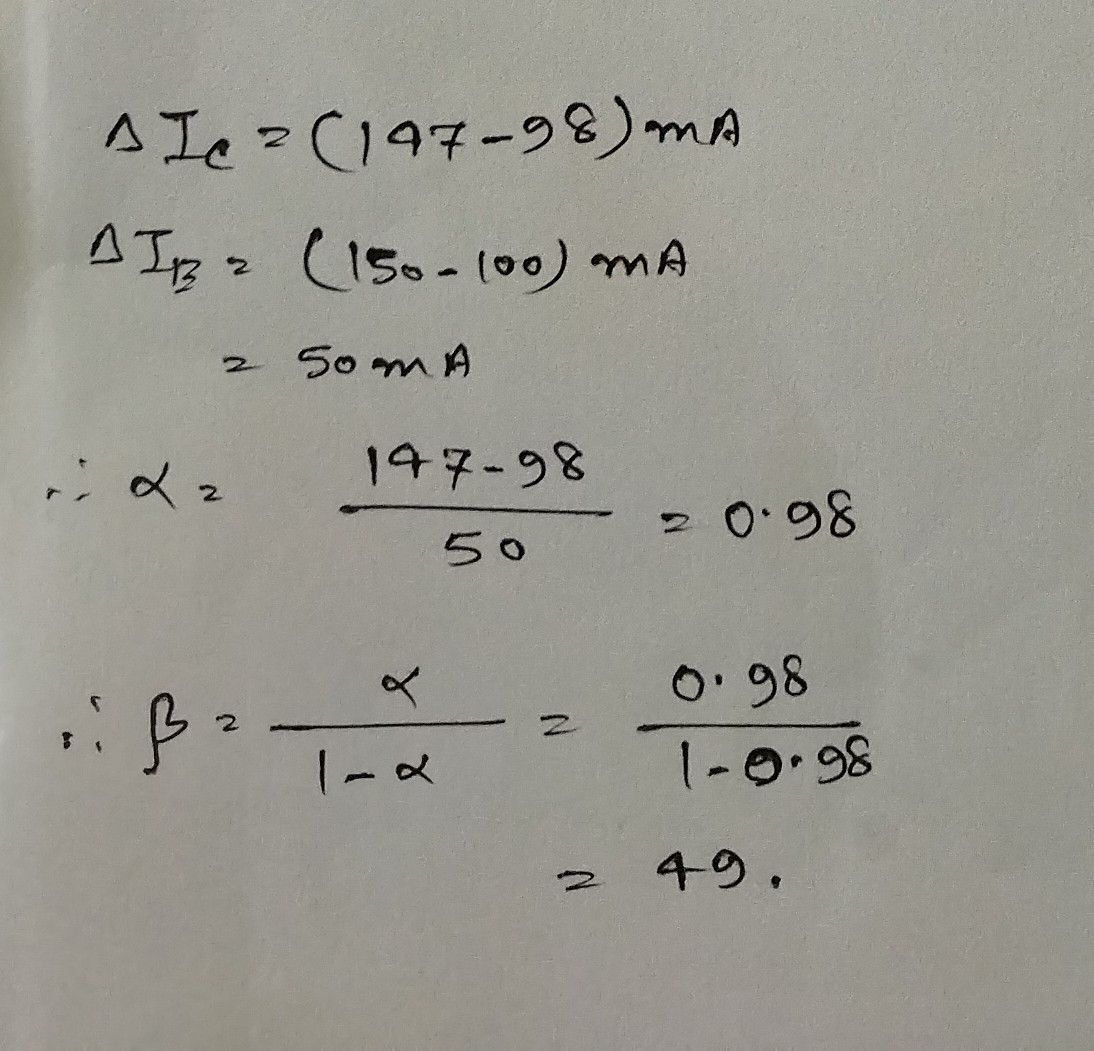 Δ I_C = (147-98) mA
Δ I_B = (150-100) mA
= 50 mA
∴ α = 147-98 / 50 = 0.98
∴ β = α / 1-α = 0.98 / 1-0.98
= 49.